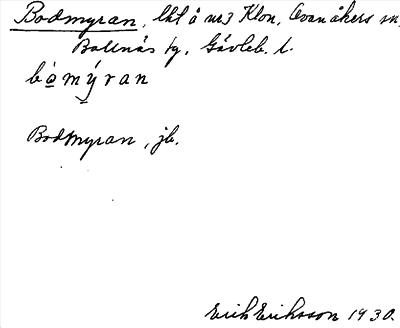 Bodmyran, lkl å nr 3 Klon, Ovanåkers sn,
Bollnäs tg, Gävleb. l.
bòmýran
Bodmyran, jb.
Erik Eriksson 1930.